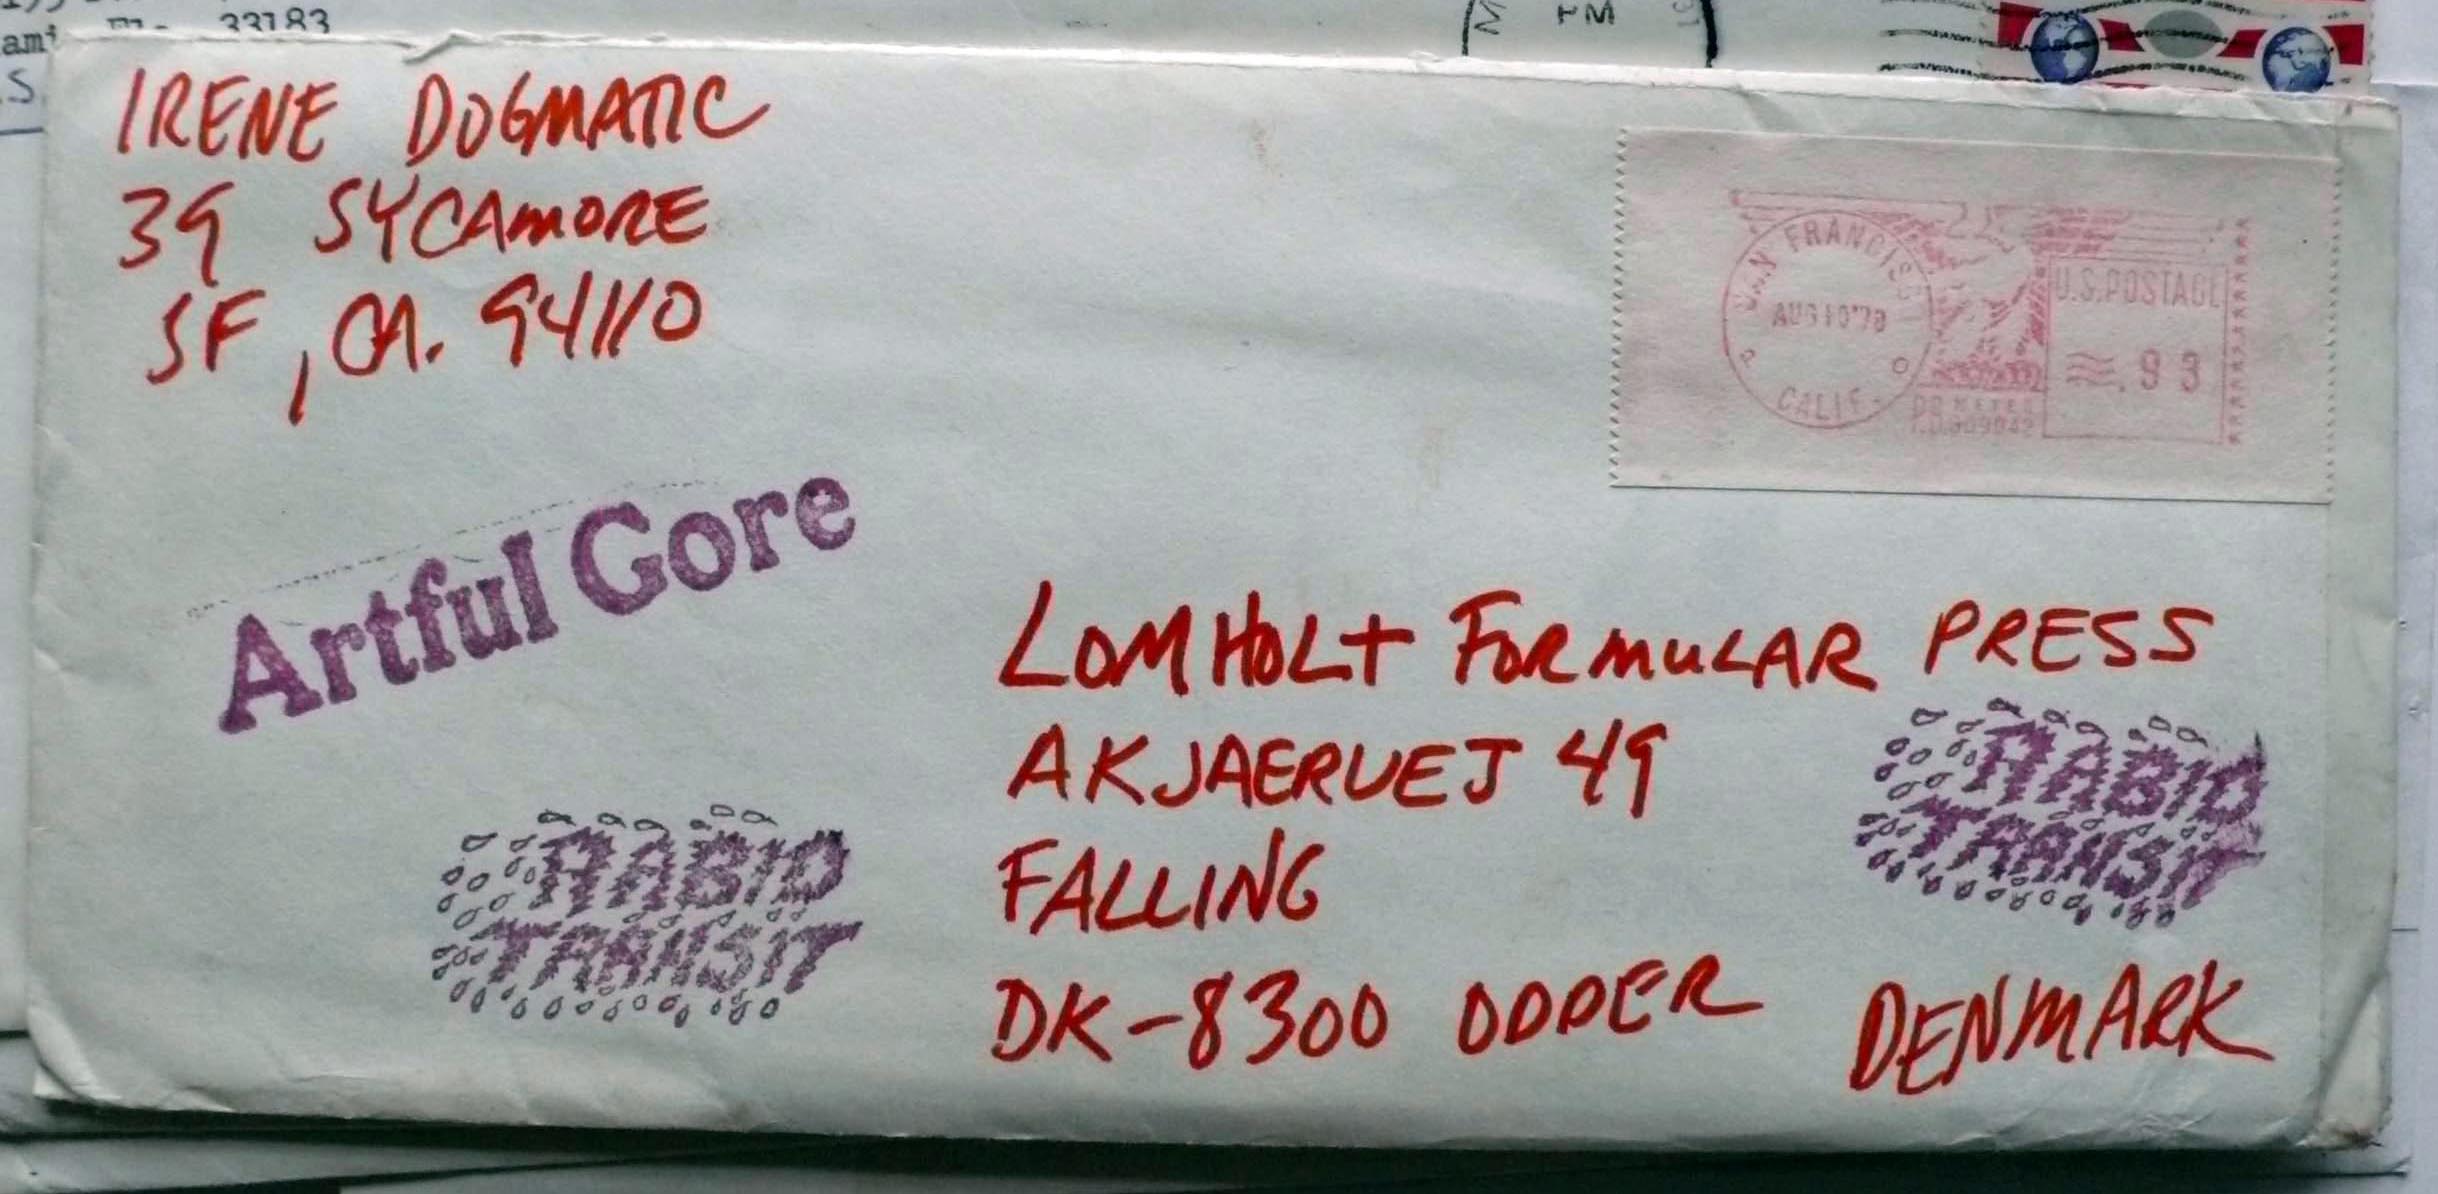 33183
PM
IRENE DOGMATIC
39 SYCAMORE
SF, CA. 94110
SAN FRANCISCO
AUG 10 '78
CALIF.
U.S. POSTAGE
.93
PB METER
Artful Gore
LOMHOLT FORMULAR PRESS
AKJAERVEJ 49
FALLING
DK-8300 ODDER DENMARK
RABID
TRANSIT
RABID
TRANSIT